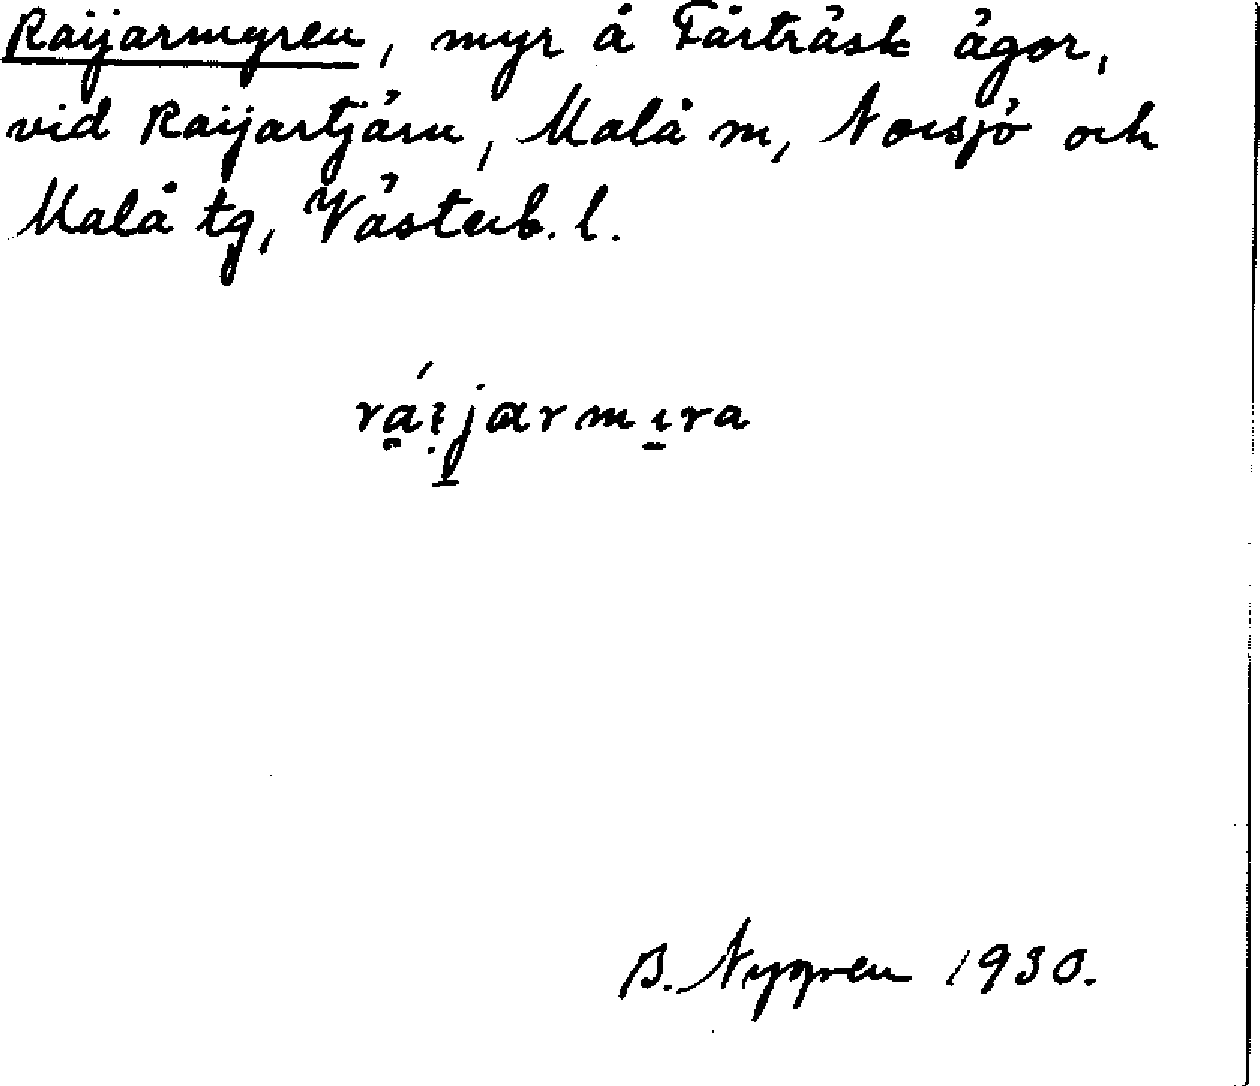 Raijarmyren, myr å Tärträsk ägor,
vid Raijartjärn, Malå sn, Norsjö och
Malå tg, Västerb. l.
rá̱ijarmi̱ra
B. Nygren 1930.